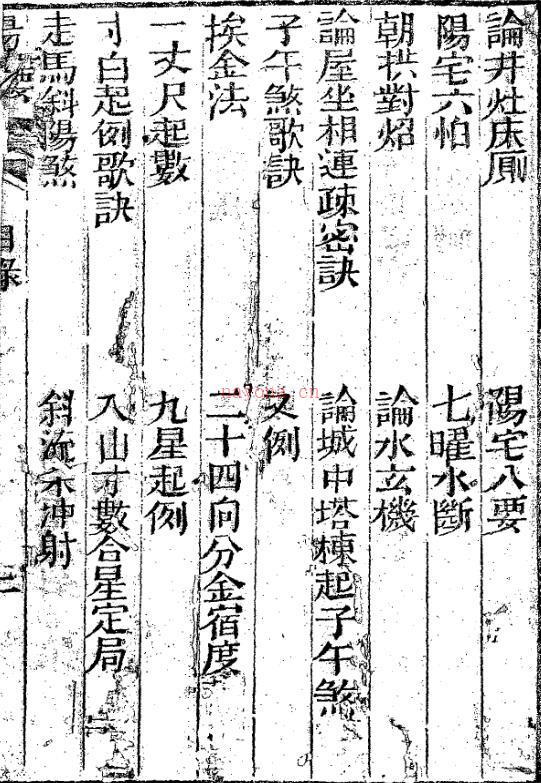 論井灶床厠
陽宅八要
陽宅六怕
七曜水斷
朝拱對炤
論水玄機
論屋坐相連疎密訣
論城中塔棟起子午煞
子午煞歌訣
又例
挨金法
二十四向分金宿度
一丈尺起數
九星起例
寸白起例歌訣
入山寸數合星定局
走馬斜陽煞
斜流禾冲射
目錄
二
nayona.cn